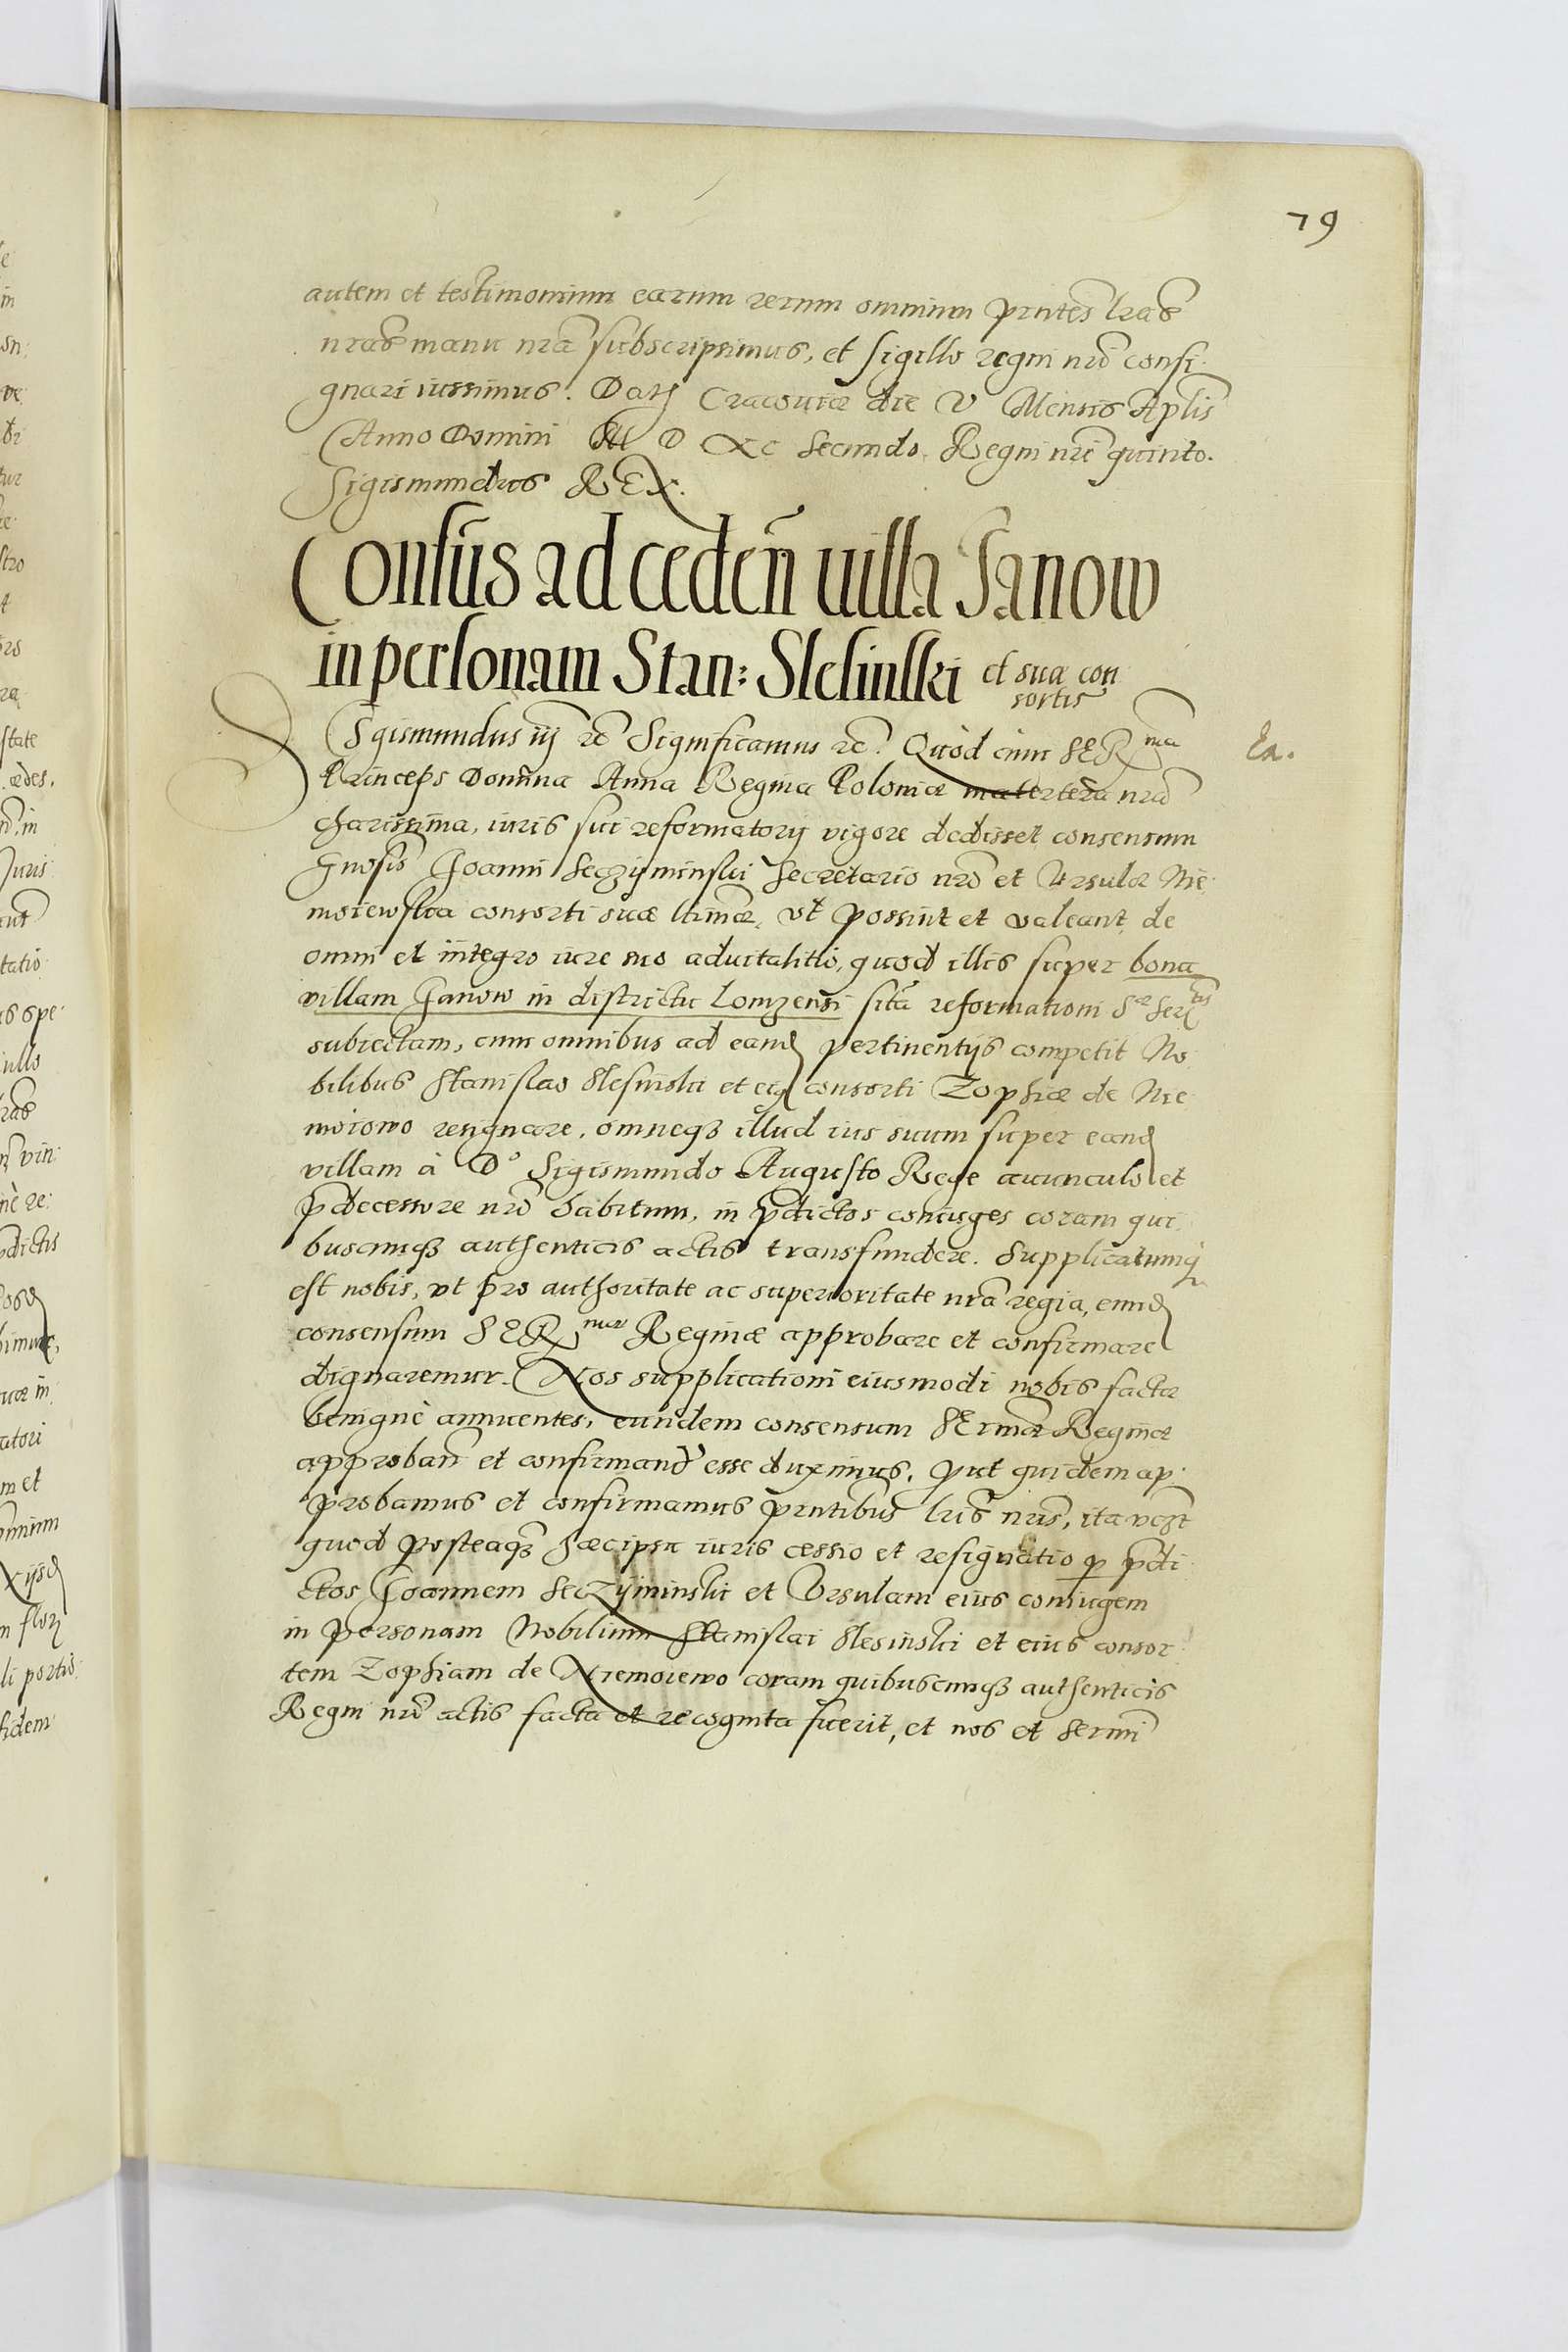 79
autem et testimonium earum rerum omnium pñtes lrãs
nrãs manu nrã subscripsimus, et sigillo regni nrĩ consi
gnari iussimus. Datũ Cracoviæ die V Mensis Aplis
Anno Domini M D XC secundo. Regni nrĩ quinto.
Sigismundus REX.
Consũs ad ceden̄ uilla Janow
in personam Stan: Slesinski et suæ con
sortis
Sigismundus iij etc̃ Significamus etc̃. Quòd cùm SER ma
Ea.
Princeps Domina Anna Regina Poloniæ matertera nrã
charissima, iuris sui reformatorij vigore dedisset consensum
Gnosis Joanni Seczÿminski Secretario nrõ et Ursulæ Nie
moiewska consorti suæ ltimæ, vt possint et valeant, de
omni et integro iure suo aduitalitio, quod illis super bona
villam Janow in districtu Lomzensi sitã reformationi Sæ Ser tis
subiectam, cum omnibus ad eand pertinentijs competit No
bilibus Stanislao Slesinski et eiq consorti Zophiæ de Nie
moiowo resignare, omneqз illud ius suum super eand
villam à Dº Sigismundo Augusto Rege auunculo et
p̃decessore nrõ habitum, in p̃dictos coniuges coram qui
buscumqз authenticis actis transfundere. Supplicatumq
est nobis, vt pro authoritate ac superioritate nrã regia, eund
consensum SER mæ Reginæ approbare et confirmare
dignaremur. Nos supplicationi eiusmodi nobis factæ
benignè annuentes, eundem consensum SErmæ Reginæ
approban̄ et confirmand esse duximus, put quidem ap
probamus et confirmamus pñtibus lris nris, ita vt
quod posteaqз hæc ipsa iuris cessio et resignatio p p̃di
ctos Joannem Seczÿminski et Vrsulam eius coniugem
in personam Nobilium Stanislai Slesinski et eius consor
tem Zophiam de Niemoiewo coram quibuscumqз authenticis
Regni nrĩ actis facta et recognita fuerit, et nos et Sermĩ